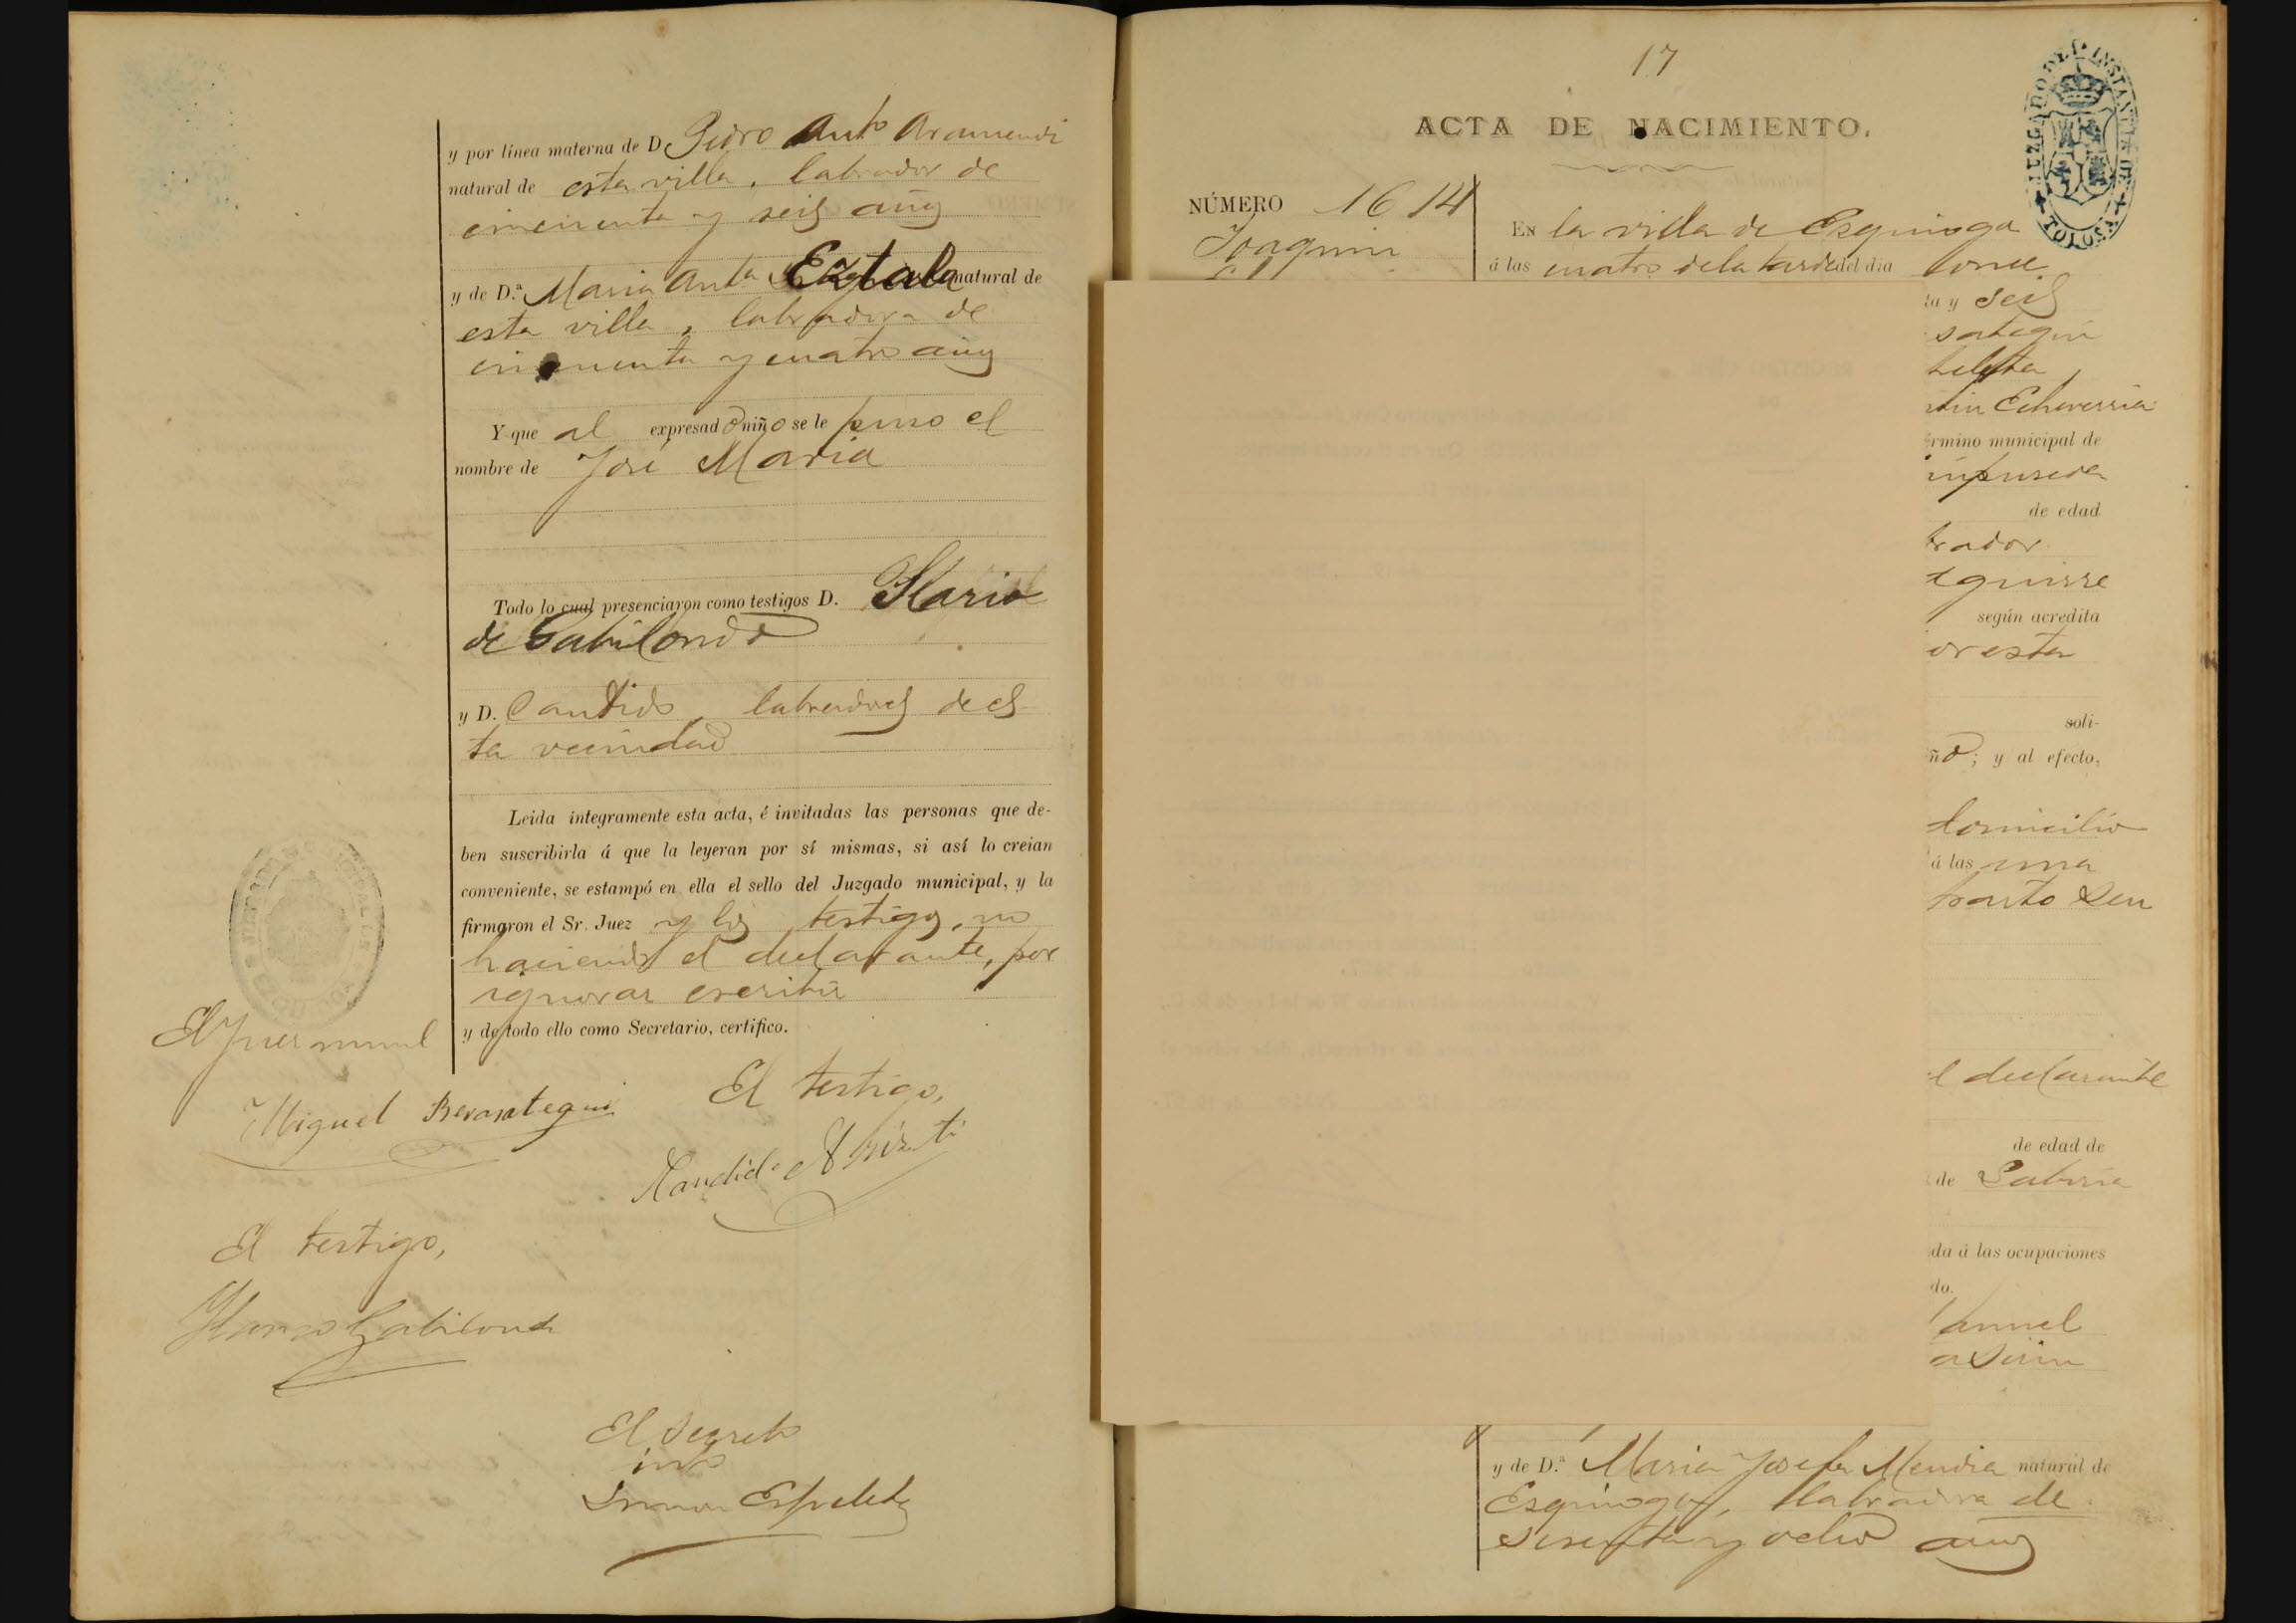 y por línea materna de D Pedro Anto Aramendi
natural de esta villa, labrador de
cincuenta y seis años
y de D.ª Maria Anta Eztala natural de
esta villa, labradora de
cincuenta y cuatro años
Y que al expresado niño se le puso el
nombre de José Maria
Todo lo cual presenciaron como testigos D. Ylario
de Gabilondo
y D. Candido, labradores de es
ta vecindad
Leida íntegramente esta acta, é invitadas las personas que de-
ben suscribirla á que la leyeran por sí mismas, si así lo creian
conveniente, se estampó en ella el sello del Juzgado municipal, y la
firmaron el Sr. Juez y los testigos, no
haciendo el declarante, por
ignorar escribir
y de todo ello como Secretario, certifico.
El Juez munl
Miguel Berasategui
El testigo,
Kandido
El testigo,
Ylario Gabilondo
El Secreto
into
Espeleta
17
ACTA DE NACIMIENTO.
JUZGADO DE 1ª INSTANCIA DE TOLOSA
NÚMERO 16 14
Joaquin
En la villa de Ezquioga
á las cuatro de la tarde del dia once
ta y seis
sategui
peleta
tin Echeverria
érmino municipal de
ipuzcoa
de edad
brador
eguirre
según acredita
or esta
soli-
ño; y al efecto,
domicilio
á las una
parto den
el declarante
de edad de
de Gabiria
da á las ocupaciones
do.
anuel
y de D.ª Maria Josefa Mendia natural de
Ezquioga, labradora de
sesenta y ocho años